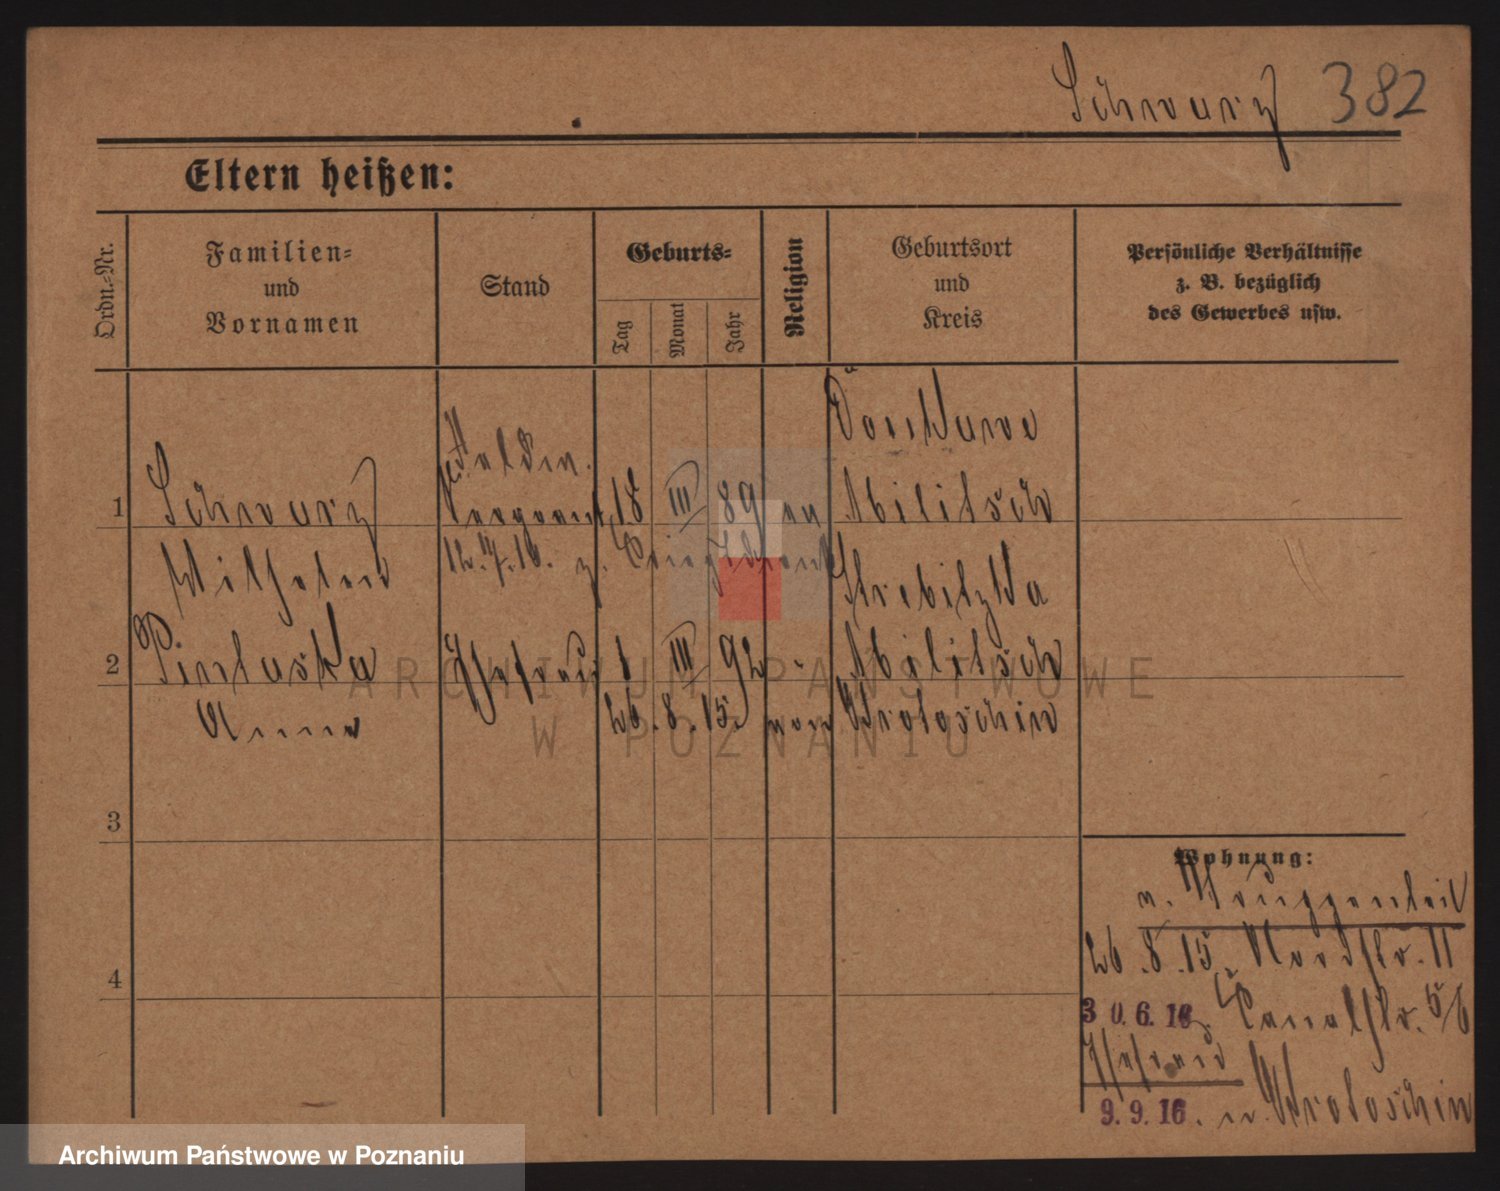 Schwarz 382
Eltern heißen:
Ordn.-Nr.
Familien-
und
Vornamen
Stand
Geburts-
Tag
Monat
Jahr
Religion
Geburtsort
und
Kreis
Persönliche Verhältnisse
z. B. bezüglich
des Gewerbes usw.
1
Schwarz
Wilhelm
Sergeant
18 III 89 ev
Militsch
12. 4. 16. z.
2
Anna
Ehefrau
1 III 92 "
Militsch
26. 8. 15. von Krotoschin
3
4
Wohnung:
v. Truppenteil
26. 8. 15. Nordstr. 11
30. 6. 16 z. Canalstr. 5/6
Ehefrau
9. 9. 16. n. Krotoschin
ARCHIWUM PAŃSTWOWE
W POZNANIU
Archiwum Państwowe w Poznaniu